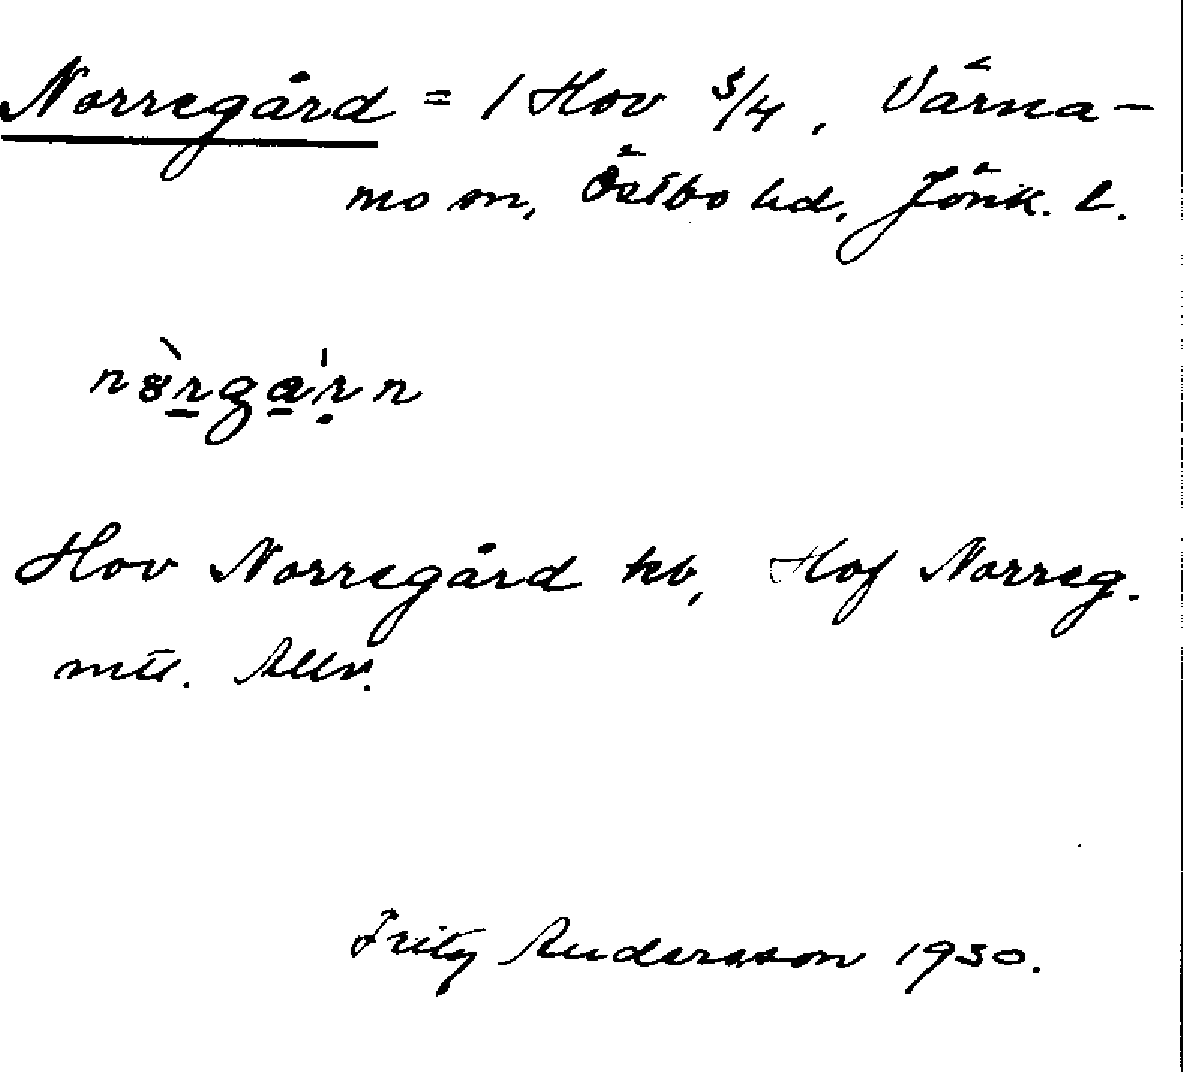 Norregård = 1 Hov 3/4, Värna-
mo sn, Östbo hd, Jönk. l.
Hov Norregård kb, Hof Norreg.
mtl. Allm.
Fritz Andersson 1930.